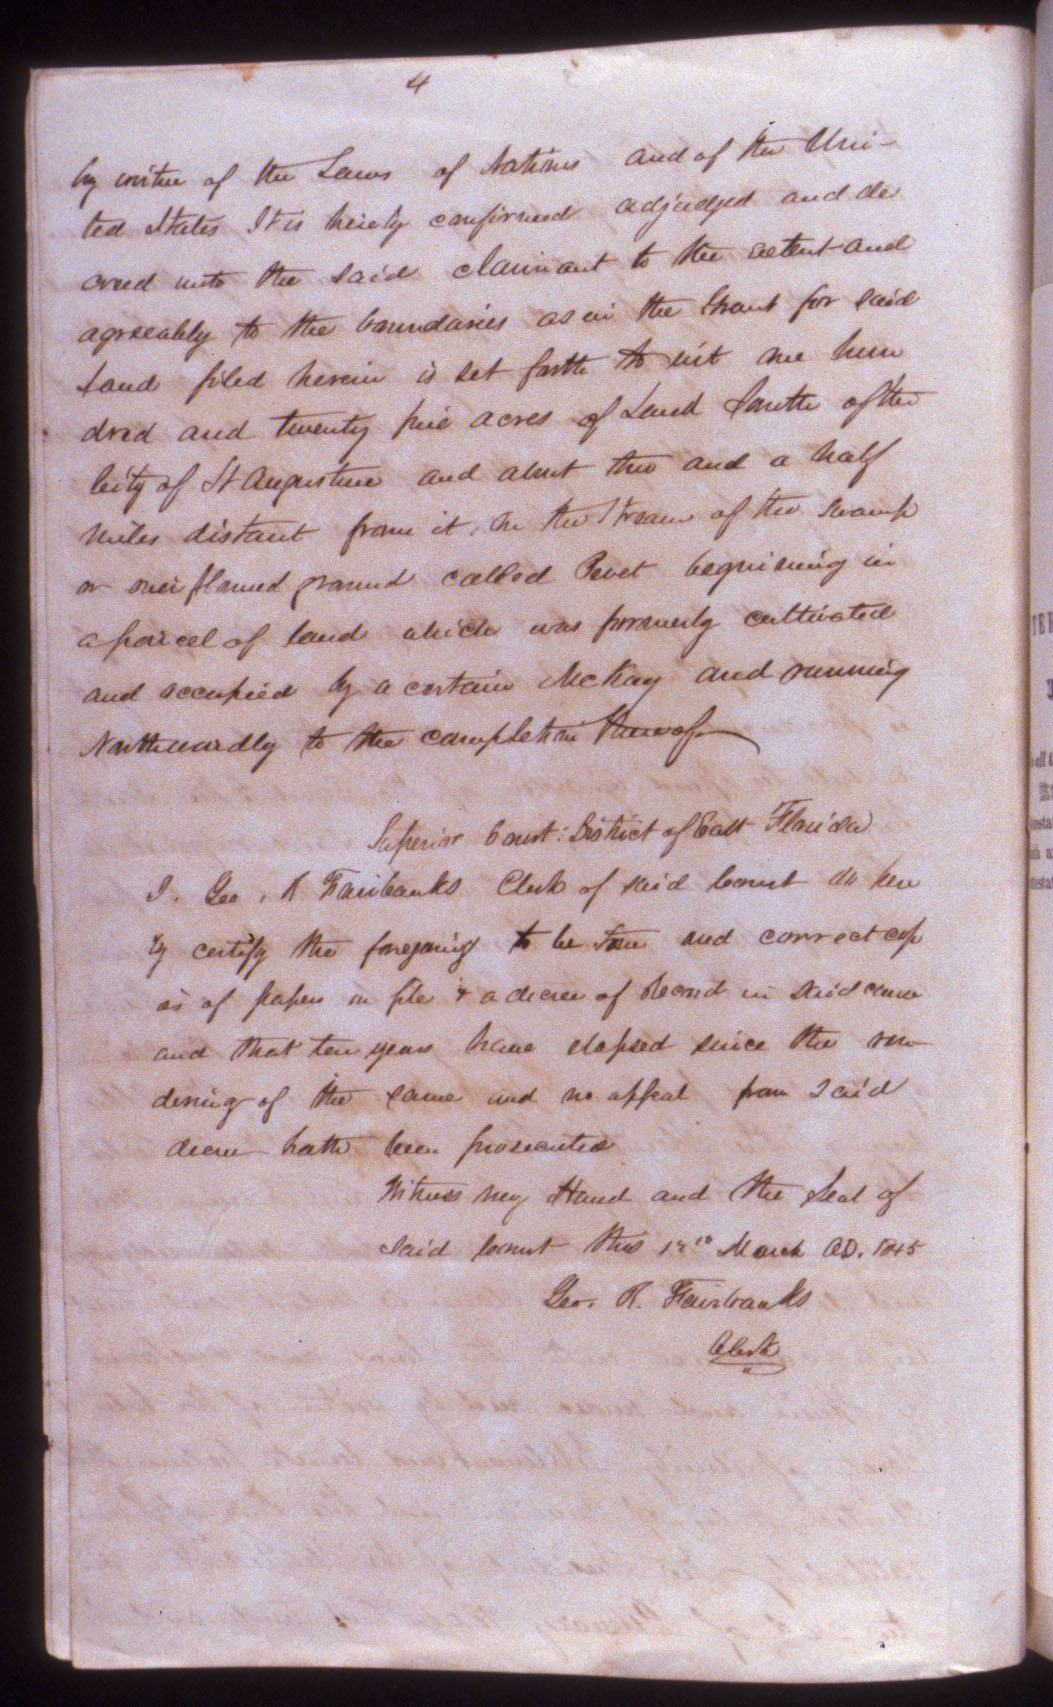 4
by virtue of the Laws of Nations and of the Uni-
ted States It is hereby confirmed adjudged and de
creed unto the said claimant to the extent and
agreeably to the boundaries as in the Grant for said
Land filed herein is set forth to wit one hun
dred and twenty five acres of Land South of the
City of St Augustine and about two and a half
miles distant from it, in the Stream of the Swamp
or over flowed ground called Pevet beginning in
a parcel of land which was formerly cultivated
and occupied by a certain McKay and running
Northwardly to the completion thereof
Superior Court: District of East Florida
I. Geo. R Fairbanks Clerk of said Court do here
by certify the foregoing to be true and correct cop
ies of papers on file & a decree of Record in said cause
and that ten years have elapsed since the ren
dering of the same and no appeal from said
decree hath been prosecuted
Witness my Hand and the Seal of
said Court this March AD. 1845
Geo. R. Fairbanks
Clerk